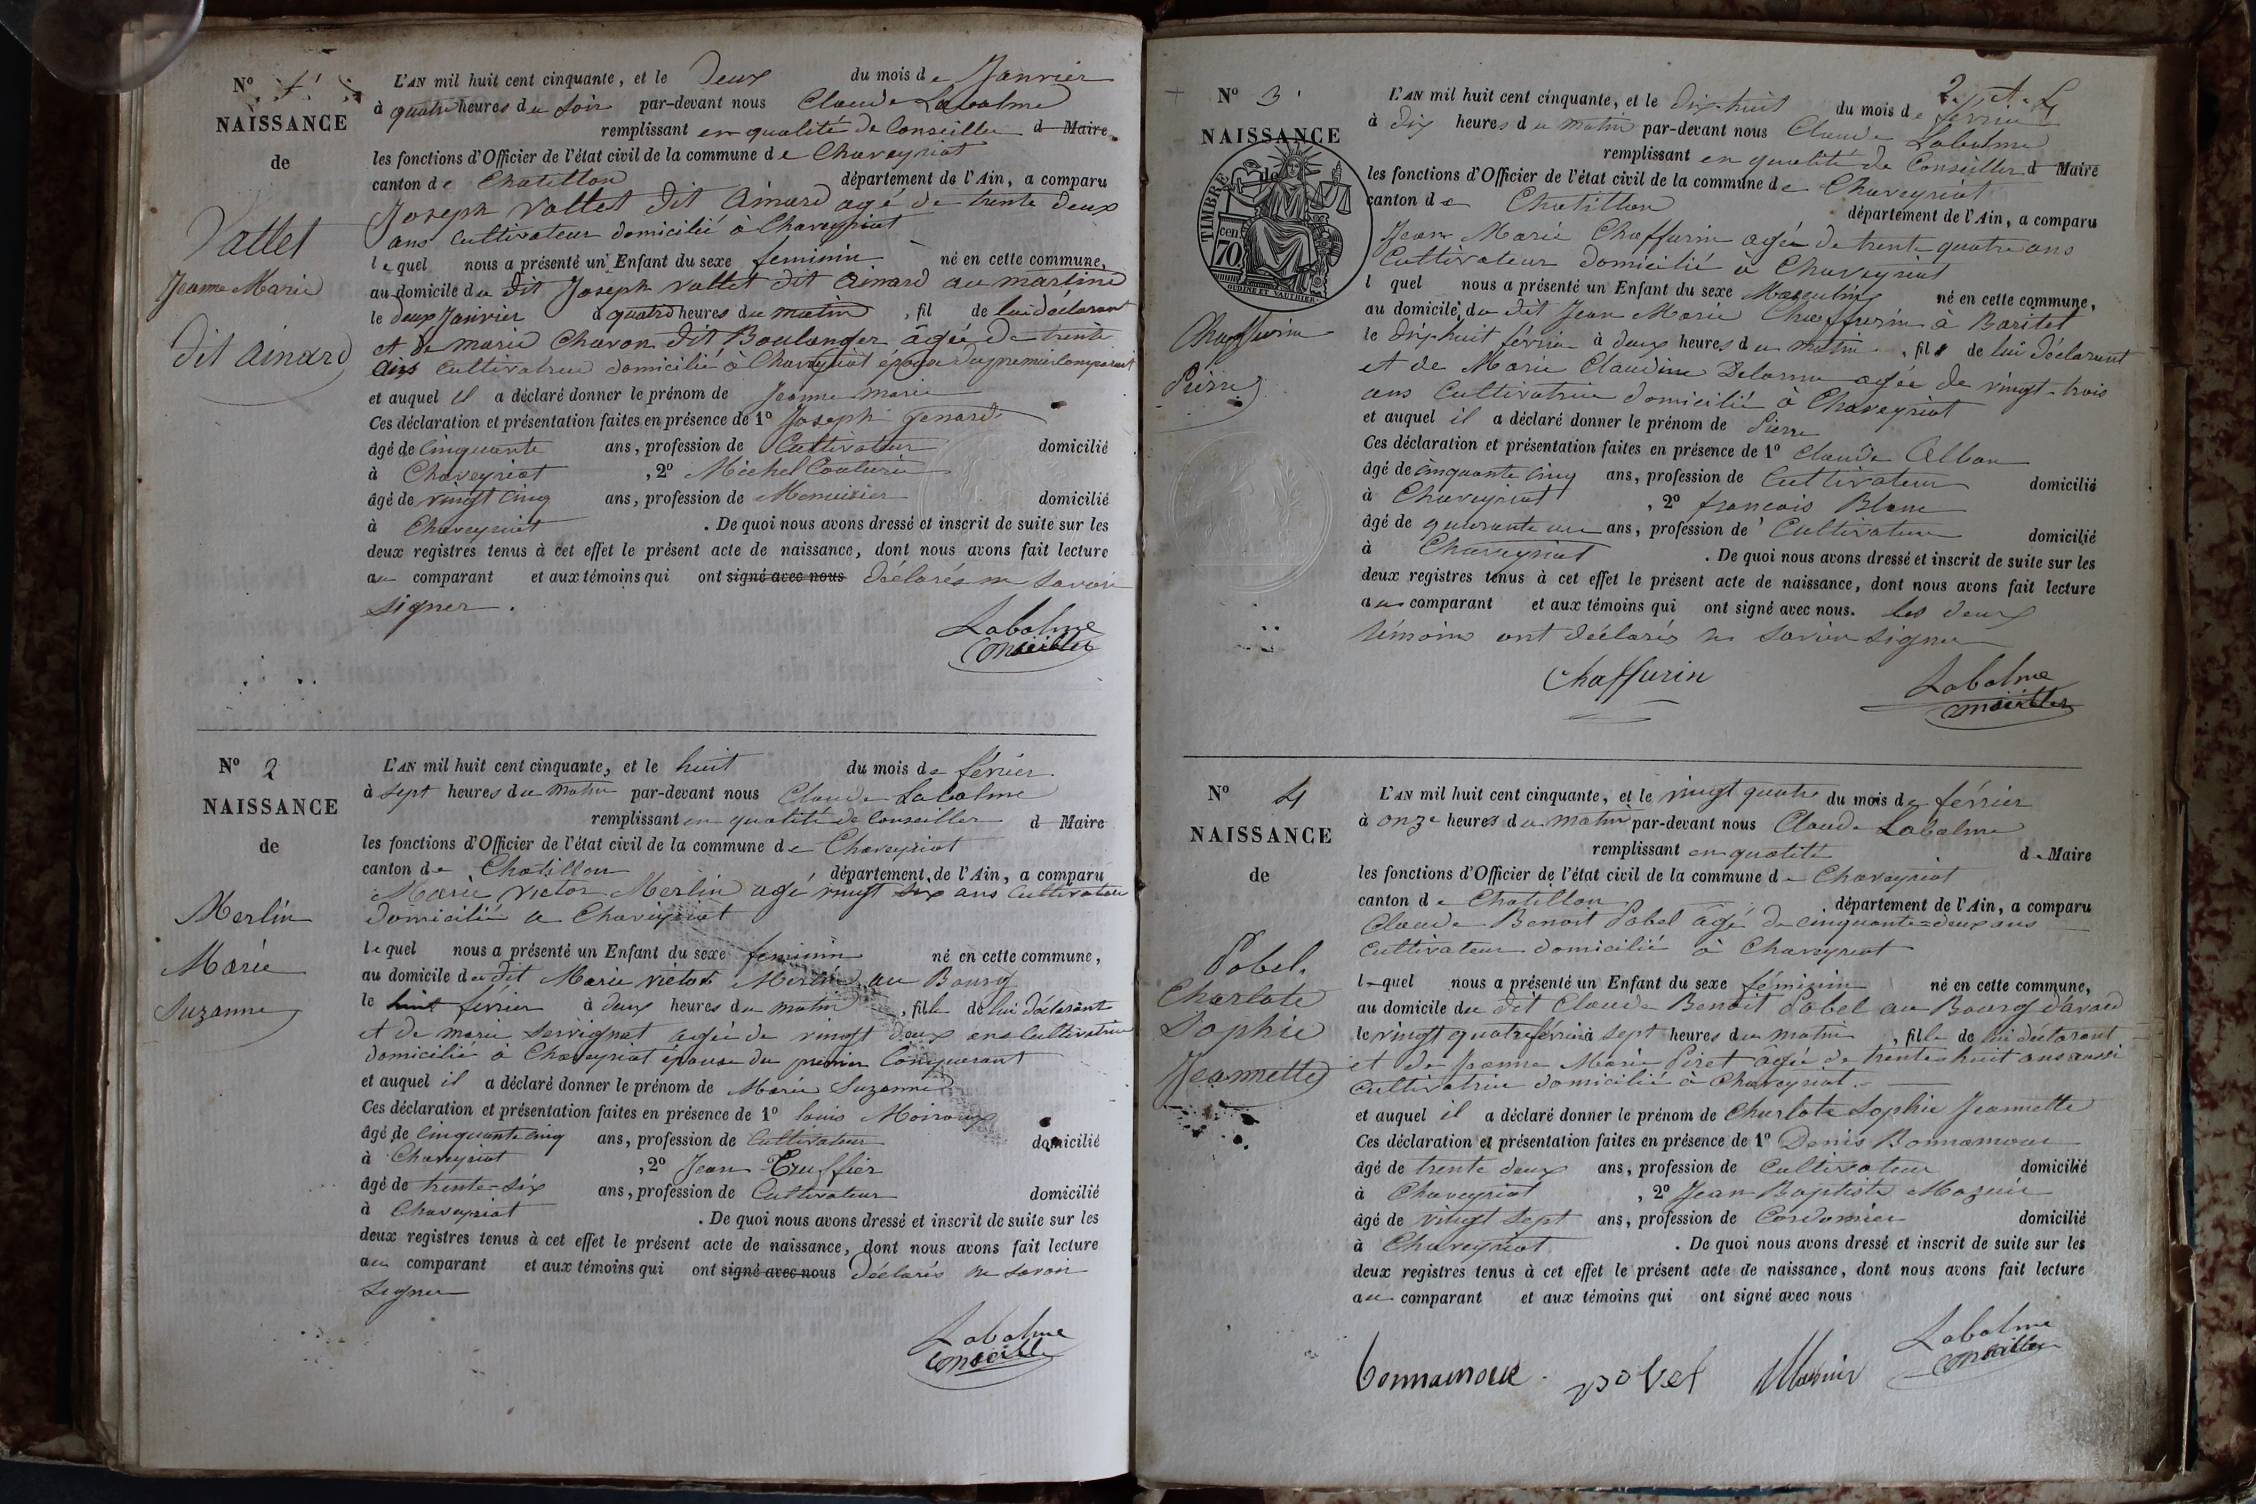 N° 1
NAISSANCE
de
Vallet
Jeanne Marie
dit Ainard
L'AN mil huit cent cinquante, et le deux du mois de Janvier
à quatre heures du soir par-devant nous Claude Labalme
remplissant en qualité de Conseiller d Maire
les fonctions d'Officier de l'état civil de la commune de Chaveyriat
canton de Chatillon département de l'Ain, a comparu
Joseph Vallet dit Ainard agé de trente deux
ans cultivateur domicilié à Chaveyriat
lequel nous a présenté un Enfant du sexe feminin né en cette commune,
au domicile du dit Joseph vallet dit Ainard au
le deux Janvier à quatre heures du matin, fil de lui déclarant
et de marie Charon dit Boulanger agée de trente
ans cultivatrice domicilié à Chaveyriat épouse du premier comparant
et auquel il a déclaré donner le prénom de Jeanne marie
Ces déclaration et présentation faites en présence de 1° Joseph Genard
âgé de Cinquante ans, profession de Cultivateur domicilié
à Chaveyriat, 2° Michel Couturie
âgé de vingt cinq ans, profession de Menuisier domicilié
à Chaveyriat. De quoi nous avons dressé et inscrit de suite sur les
deux registres tenus à cet effet le présent acte de naissance, dont nous avons fait lecture
au comparant et aux témoins qui ont signé avec nous déclarés ne savoir
signer.
Labalme
Conseiller
N° 2
NAISSANCE
de
Merlin
Marie
Suzanne
L'AN mil huit cent cinquante, et le huit du mois de février
à sept heures du matin par-devant nous Claude Labalme
remplissant en qualité de Conseiller d Maire
les fonctions d'Officier de l'état civil de la commune de Chaveyriat
canton de Chatillon département de l'Ain, a comparu
Marie victor Merlin agé vingt six ans Cultivateur
domicilié a Chaveyriat
lequel nous a présenté un Enfant du sexe feminin né en cette commune,
au domicile du dit Marie victor Merlin au Bourg
le huit février à deux heures du matin, fille de lui déclarant
et de marie Servignat agée de vingt deux ans Cultivatrice
domicilié à Chaveyriat épouse du premier Comparant
et auquel il a déclaré donner le prénom de Marie Suzanne
Ces déclaration et présentation faites en présence de 1° louis Moiroux
âgé de Cinquante cinq ans, profession de Cultivateur domicilié
à Chaveyriat, 2° Jean Truffier
âgé de trente-six ans, profession de Cultivateur domicilié
à Chaveyriat. De quoi nous avons dressé et inscrit de suite sur les
deux registres tenus à cet effet le présent acte de naissance, dont nous avons fait lecture
au comparant et aux témoins qui ont signé avec nous déclarés ne savoir
signer
Labalme
Conseiller
N° 3
NAISSANCE
de
TIMBRE
70 cen.
OUDINE ET VAUTHIER
Chaffurin
Pierre
L'AN mil huit cent cinquante, et le dix-huit du mois de février
à dix heures du matin par-devant nous Claude Labalme
remplissant en qualité de Conseiller d Maire
les fonctions d'Officier de l'état civil de la commune de Chaveyriat
canton de Chatillon département de l'Ain, a comparu
Jean Marie Chaffurin agée de trente quatre ans
Cultivateur domicilié à Chaveyriat
l quel nous a présenté un Enfant du sexe Masculin né en cette commune,
au domicile du dit Jean Marie Chaffurin à Baritel
le dix-huit février à deux heures du matin, fils de lui déclarant
et de Marie Claudine Delorme agée de vingt-trois
ans Cultivatrice domicilié à Chaveyriat
et auquel il a déclaré donner le prénom de Pierre
Ces déclaration et présentation faites en présence de 1° Claude Alban
âgé de cinquante cinq ans, profession de Cultivateur domicilié
à Chaveyriat, 2° francois Blanc
âgé de quarante un ans, profession de Cultivateur domicilié
à Chaveyriat. De quoi nous avons dressé et inscrit de suite sur les
deux registres tenus à cet effet le présent acte de naissance, dont nous avons fait lecture
au comparant et aux témoins qui ont signé avec nous. les deux
témoins ont déclarés ne savoir signer
Chaffurin
Labalme
Conseiller
N° 4
NAISSANCE
de
Pobel
Charlote
Sophie
Jeannette
L'AN mil huit cent cinquante, et le vingt quatre du mois de février
à onze heures du matin par-devant nous Claude Labalme
remplissant en qualité de Maire
les fonctions d'Officier de l'état civil de la commune de Chaveyriat
canton de Chatillon département de l'Ain, a comparu
Claude Benoit Pobel agé de cinquante-deux ans
Cultivateur domicilié à Chaveyriat
lequel nous a présenté un Enfant du sexe féminin né en cette commune,
au domicile du dit Claude Benoit Pobel au Bourg
le vingt quatre février à sept heures du matin, fille de lui déclarant
et de Jeanne Marie Piret agée de trente huit ans aussi
Cultivatrice domicilié à Chaveyriat.
et auquel il a déclaré donner le prénom de Charlote Sophie Jeannette
Ces déclaration et présentation faites en présence de 1° Denis Bonnamour
âgé de trente deux ans, profession de Cultivateur domicilié
à Chaveyriat, 2° Jean Baptiste Mazuir
âgé de vingt sept ans, profession de Cordonnier domicilié
à Chaveyriat. De quoi nous avons dressé et inscrit de suite sur les
deux registres tenus à cet effet le présent acte de naissance, dont nous avons fait lecture
au comparant et aux témoins qui ont signé avec nous
bonnamour pobel Mazuir
Labalme
Conseiller